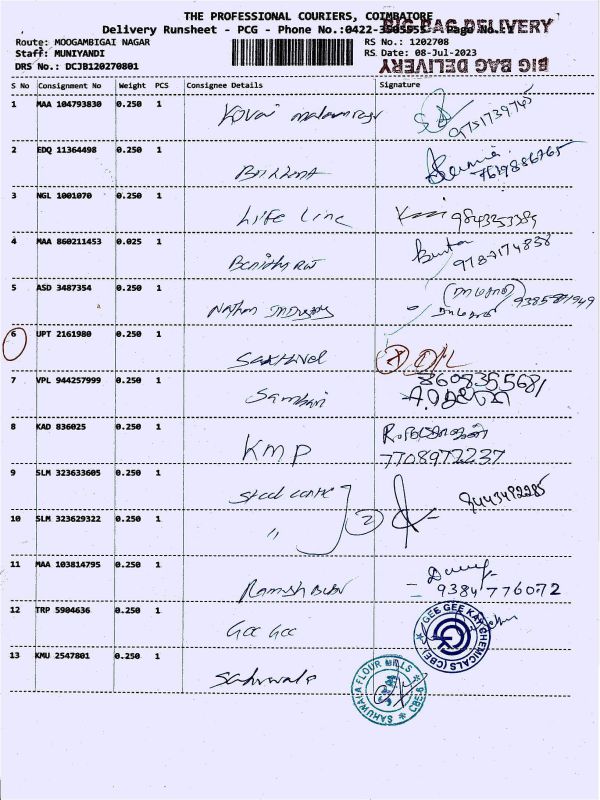 THE PROFESSIONAL COURIERS, COIMBATORE
Delivery Runsheet - PCG - Phone No.:0422-3505555 - Page No.:1
BIG BAG DELIVERY
Route: MOOGAMBIGAI NAGAR
RS No.: 1202708
Staff: MUNIYANDI
RS Date: 08-Jul-2023
DRS No.: DCJB120270801
BIG BAG DELIVERY
S No Consignment No Weight PCS Consignee Details Signature
1 MAA 104793830 0.250 1 Kovai 9751739745
2 EDQ 11364498 0.250 1 7619886765
3 NGL 1001070 0.250 1 Life Line
4 MAA 860211453 0.025 1 9787174838
5 ASD 3487354 0.250 1
6 UPT 2161980 0.250 1 Sakthivel
7 VPL 944257999 0.250 1 8608355681
8 KAD 836025 0.250 1 KMP
7708972237
9 SLM 323633605 0.250 1 9443492285
10 SLM 323629322 0.250 1 〃 2
11 MAA 103814795 0.250 1 Ramesh Babu
9384776072
12 TRP 5904636 0.250 1 Gee Gee GEE GEE KAY CHEMICALS (CBE)
13 KMU 2547801 0.250 1 Sahuwala
SAHUWALA FLOUR MILLS CBE-9